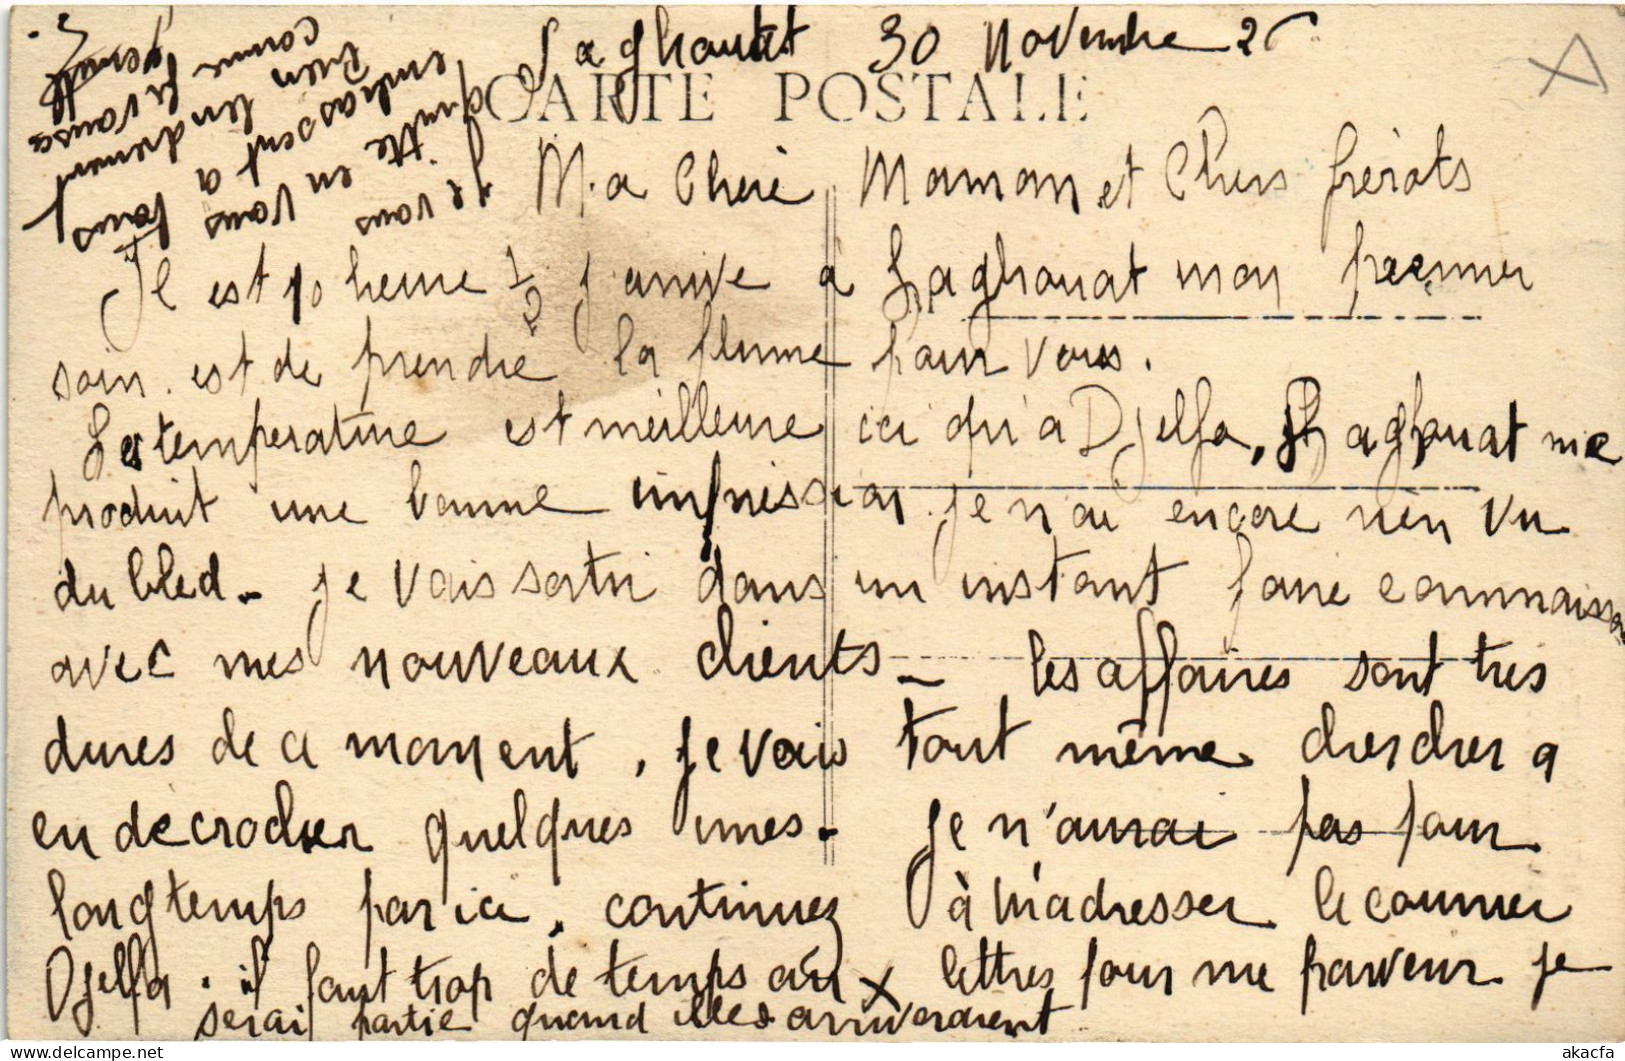 Laghouat 30 Novembre 26
CARTE POSTALE
Ma Cheré Maman et Chers frérots
Il est 10 heure 1/2 j'arrive a Laghouat mon premier
soin est de prendre la plume pour vous.
La temperature est meilleure ici qu'a Djelfa, Laghouat me
produit une bonne impression je n'ai encore rien vu
du bled - je vais sortir dans un instant faire connaissan
avec mes nouveaux clients - les affaires sont tres
dures de ce moment, je vais tout même chercher a
en decrocher quelques unes. je n'aurai pas pour
longtemps par ici, continuez à m'adresser le courrier
Djelfa. il faut trop de temps aux lettres pour me parvenir je
serai partie quand elles arriveraient
Je vous
quitte en vous
embrassant a tous
bien tendrement
comme je vous